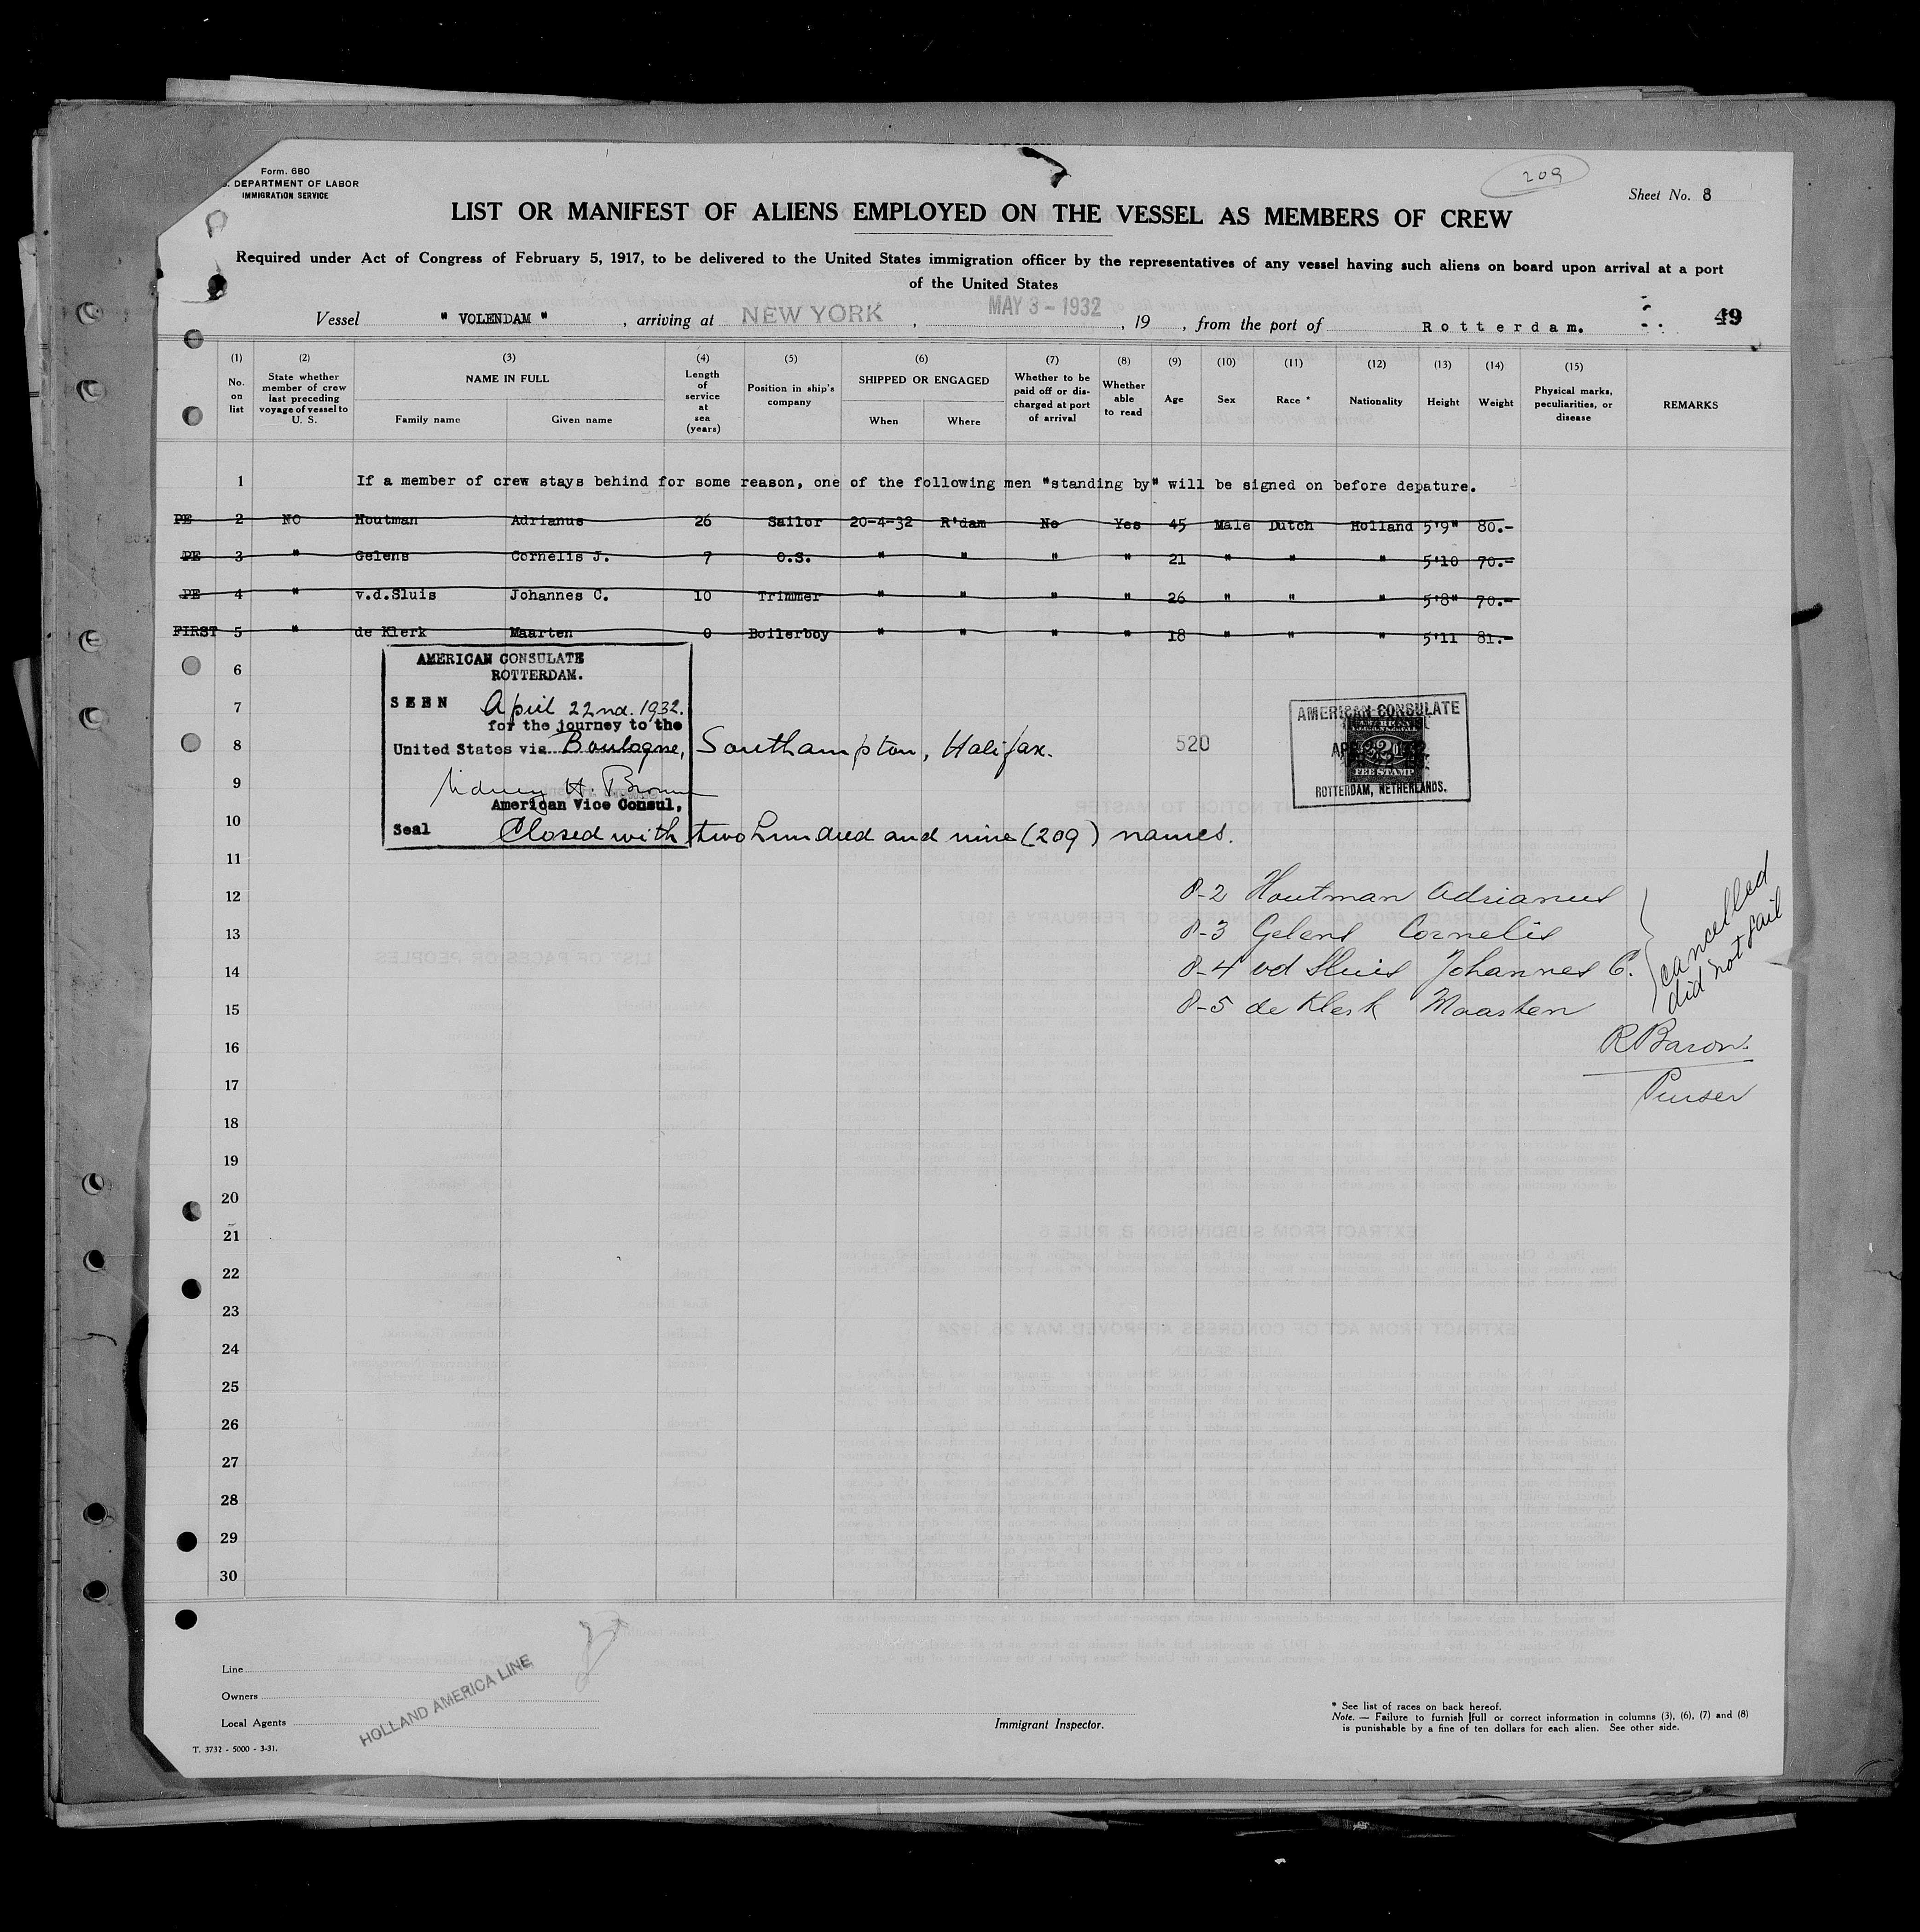 Form. 680
. DEPARTMENT OF LABOR
IMMIGRATION SERVICE
209
Sheet No. 8
LIST OR MANIFEST OF ALIENS EMPLOYED ON THE VESSEL AS MEMBERS OF CREW
Required under Act of Congress of February 5, 1917, to be delivered to the United States immigration officer by the representatives of any vessel having such aliens on board upon arrival at a port
of the United States
Vessel " VOLENDAM " , arriving at NEW YORK , MAY 3 - 1932 , 19 , from the port of Rotterdam. 49
(1) No. on list
(2) State whether member of crew last preceding voyage of vessel to U. S.
(3) NAME IN FULL Family name Given name
(4) Length of service at sea (years)
(5) Position in ship's company
(6) SHIPPED OR ENGAGED When Where
(7) Whether to be paid off or discharged at port of arrival
(8) Whether able to read
(9) Age
(10) Sex
(11) Race *
(12) Nationality
(13) Height
(14) Weight
(15) Physical marks, peculiarities, or disease
REMARKS
1 If a member of crew stays behind for some reason, one of the following men "standing by" will be signed on before depature.
PE 2 NO Houtman Adrianus 26 Sailor 20-4-32 R'dam No Yes 45 Male Dutch Holland 5'9" 80.-
PE 3 " Gelens Cornelis J. 7 O.S. " " " " 21 " " " 5'10 70.-
PE 4 " v.d.Sluis Johannes C. 10 Trimmer " " " " 26 " " " 5'8" 70.-
FIRST 5 " de Klerk Maarten 0 Boilerboy " " " " 18 " " " 5'11 81.-
AMERICAN CONSULATE
ROTTERDAM.
SEEN April 22nd. 1932.
for the journey to the
United States via Boulogne, Southampton, Halifax.
Sidney H. Brown
American Vice Consul,
Seal Closed with two hundred and nine (209) names.
520
AMERICAN CONSULATE
FEE STAMP
ROTTERDAM, NETHERLANDS.
6
7
8
9
10
11
12
13
14
15
16
17
18
19
20
21
22
23
24
25
26
27
28
29
30
8-2 Houtman Adrianus
8-3 Gelens Cornelis
8-4 vd Sluis Johannes C.
8-5 de Klerk Maarten
cancelled
did not sail
R Baron.
Purser
Line
Owners
Local Agents
HOLLAND AMERICA LINE
T. 3732 - 5000 - 3-31.
Immigrant Inspector.
* See list of races on back hereof.
Note. — Failure to furnish full or correct information in columns (3), (6), (7) and (8)
is punishable by a fine of ten dollars for each alien. See other side.